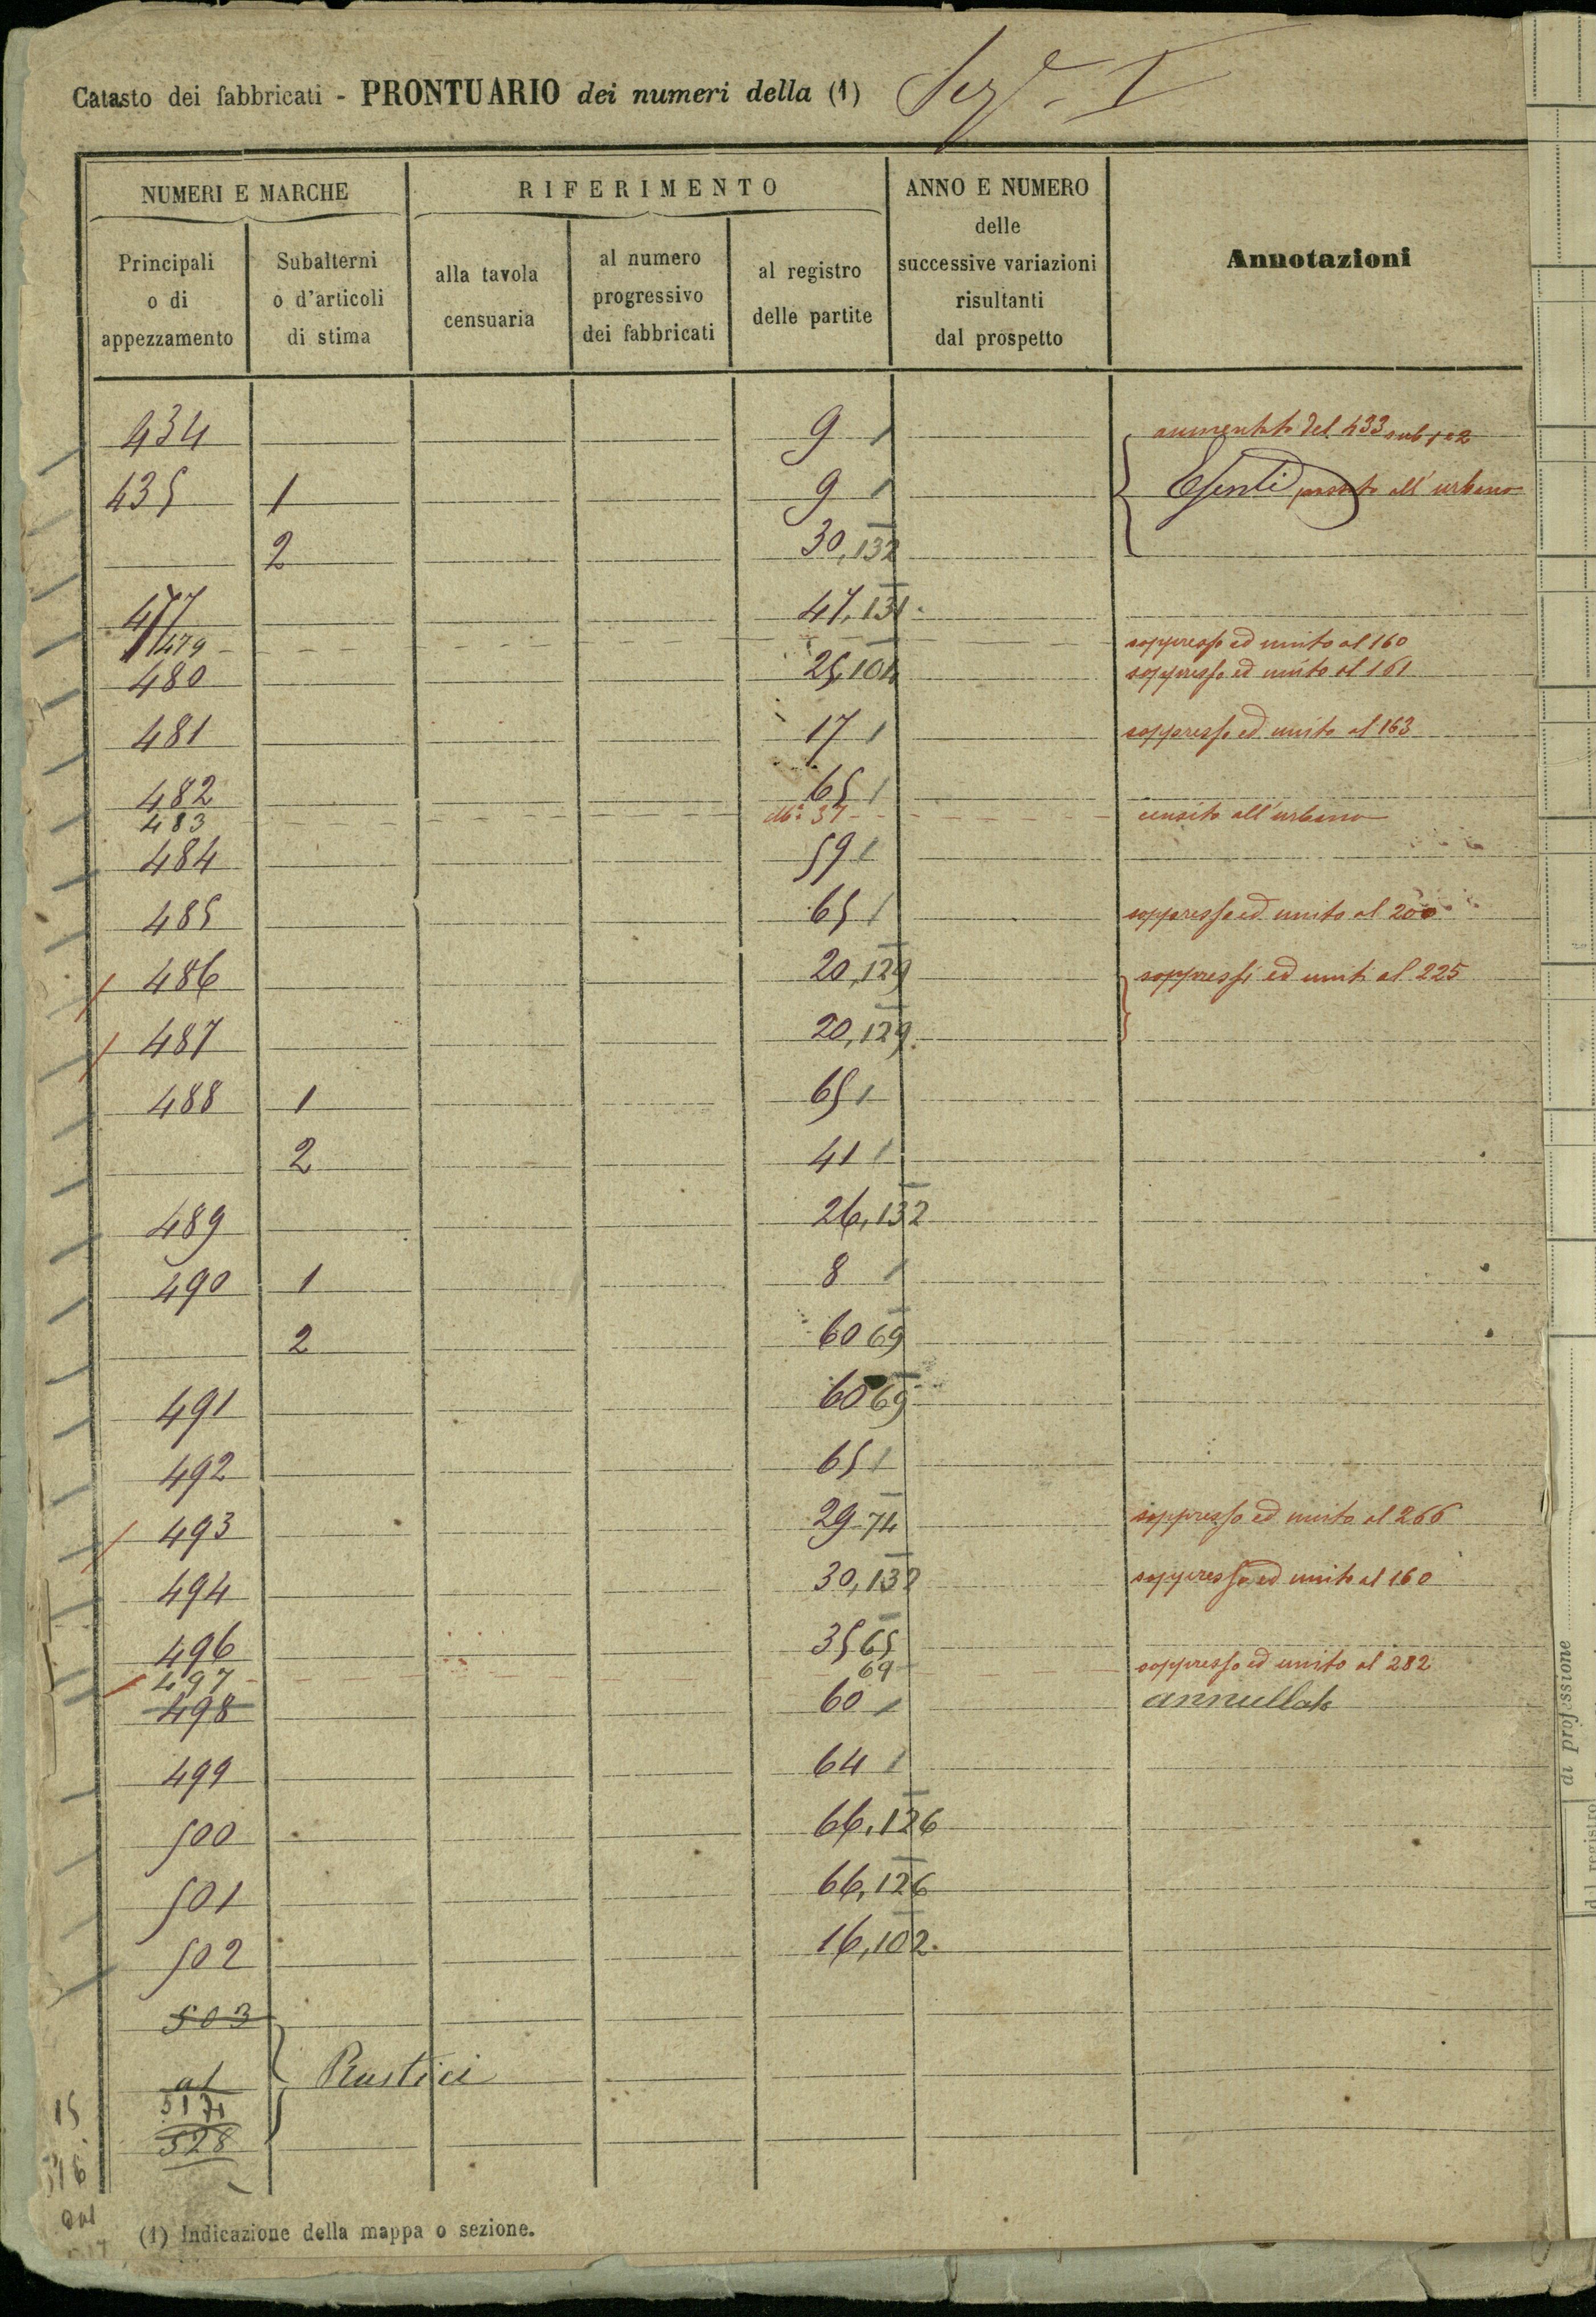 Catasto dei fabbricati - PRONTUARIO dei numeri della (1) Sez.e I
NUMERI E MARCHE
RIFERIMENTO
ANNO E NUMERO
delle
successive variazioni
risultanti
dal prospetto
Annotazioni
Principali
o di
appezzamento
Subalterni
o d'articoli
di stima
alla tavola
censuaria
al numero
progressivo
dei fabbricati
al registro
delle partite
434 9 1 aumentato del 433 sub 1 e 2
435 1 9 1 Esenti passato all'urbano
2 30,132
477 47,131
479 soppresso ed unito al 160
480 25,104 soppresso ed unito al 161
481 17 1 soppresso ed unito al 163
482 65 1
483 37 censito all'urbano
484 59 1
485 65 1 soppresso ed unito al 200
486 20,129 soppressi ed uniti al 225
487 20,129
488 1 65 1
2 41 1
489 26,132
490 1 8 1
2 60 69
491 60 69
492 65 1
493 29 74 soppresso ed unito al 266
494 30,132 soppresso ed unito al 160
496 35 65
497 69 soppresso ed unito al 282
498 60 1 annullato
499 64 1
500 66,126
501 66,126
502 16,102
503
al Rustici
517
528
15
516
(1) Indicazione della mappa o sezione.
di professione